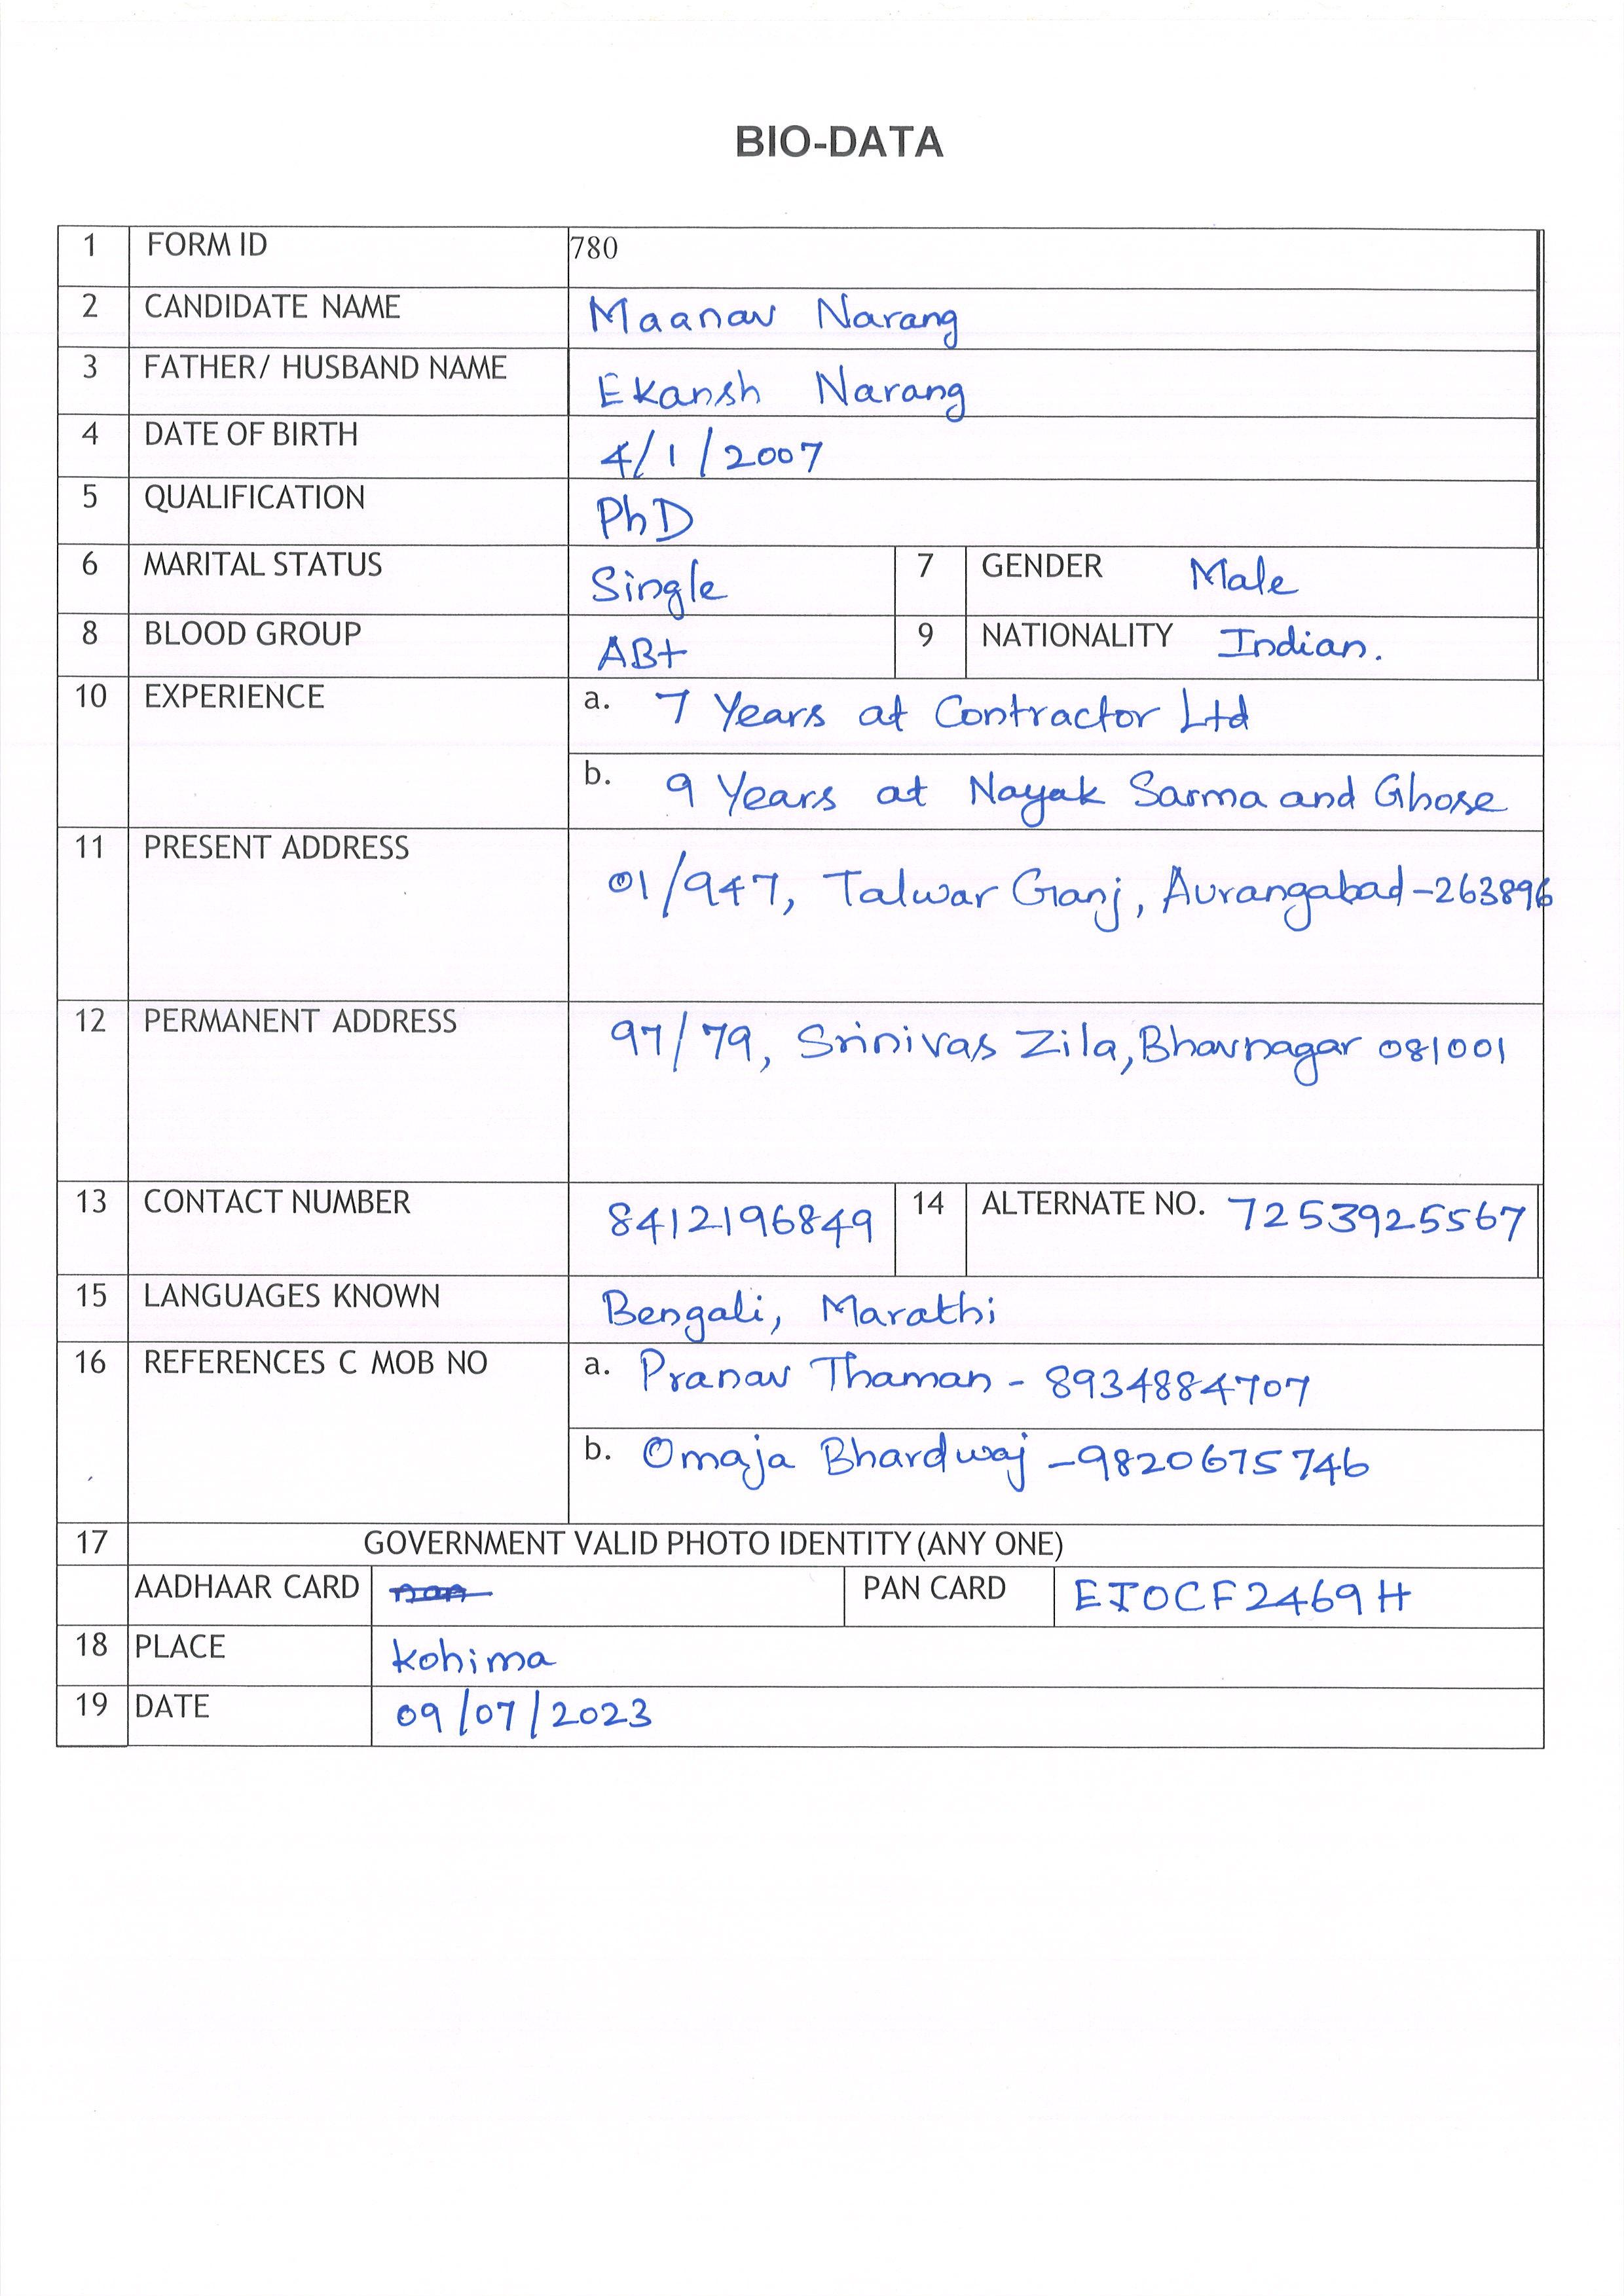 BIO-DATA
1 FORM ID 780
2 CANDIDATE NAME Maanav Narang
3 FATHER/ HUSBAND NAME Ekansh Narang
4 DATE OF BIRTH 4/1/2007
5 QUALIFICATION PhD
6 MARITAL STATUS Single 7 GENDER Male
8 BLOOD GROUP AB+ 9 NATIONALITY Indian.
10 EXPERIENCE a. 7 Years at Contractor Ltd
b. 9 Years at Nayak Sarma and Ghose
11 PRESENT ADDRESS 01/947, Talwar Ganj, Aurangabad-263896
12 PERMANENT ADDRESS 97/79, Srinivas Zila, Bhavnagar 081001
13 CONTACT NUMBER 8412196849 14 ALTERNATE NO. 7253925567
15 LANGUAGES KNOWN Bengali, Marathi
16 REFERENCES C MOB NO a. Pranav Thaman - 8934884707
b. Omaja Bhardwaj -9820675746
17 GOVERNMENT VALID PHOTO IDENTITY (ANY ONE)
AADHAAR CARD PAN CARD EIOCF2469H
18 PLACE kohima
19 DATE 09/07/2023